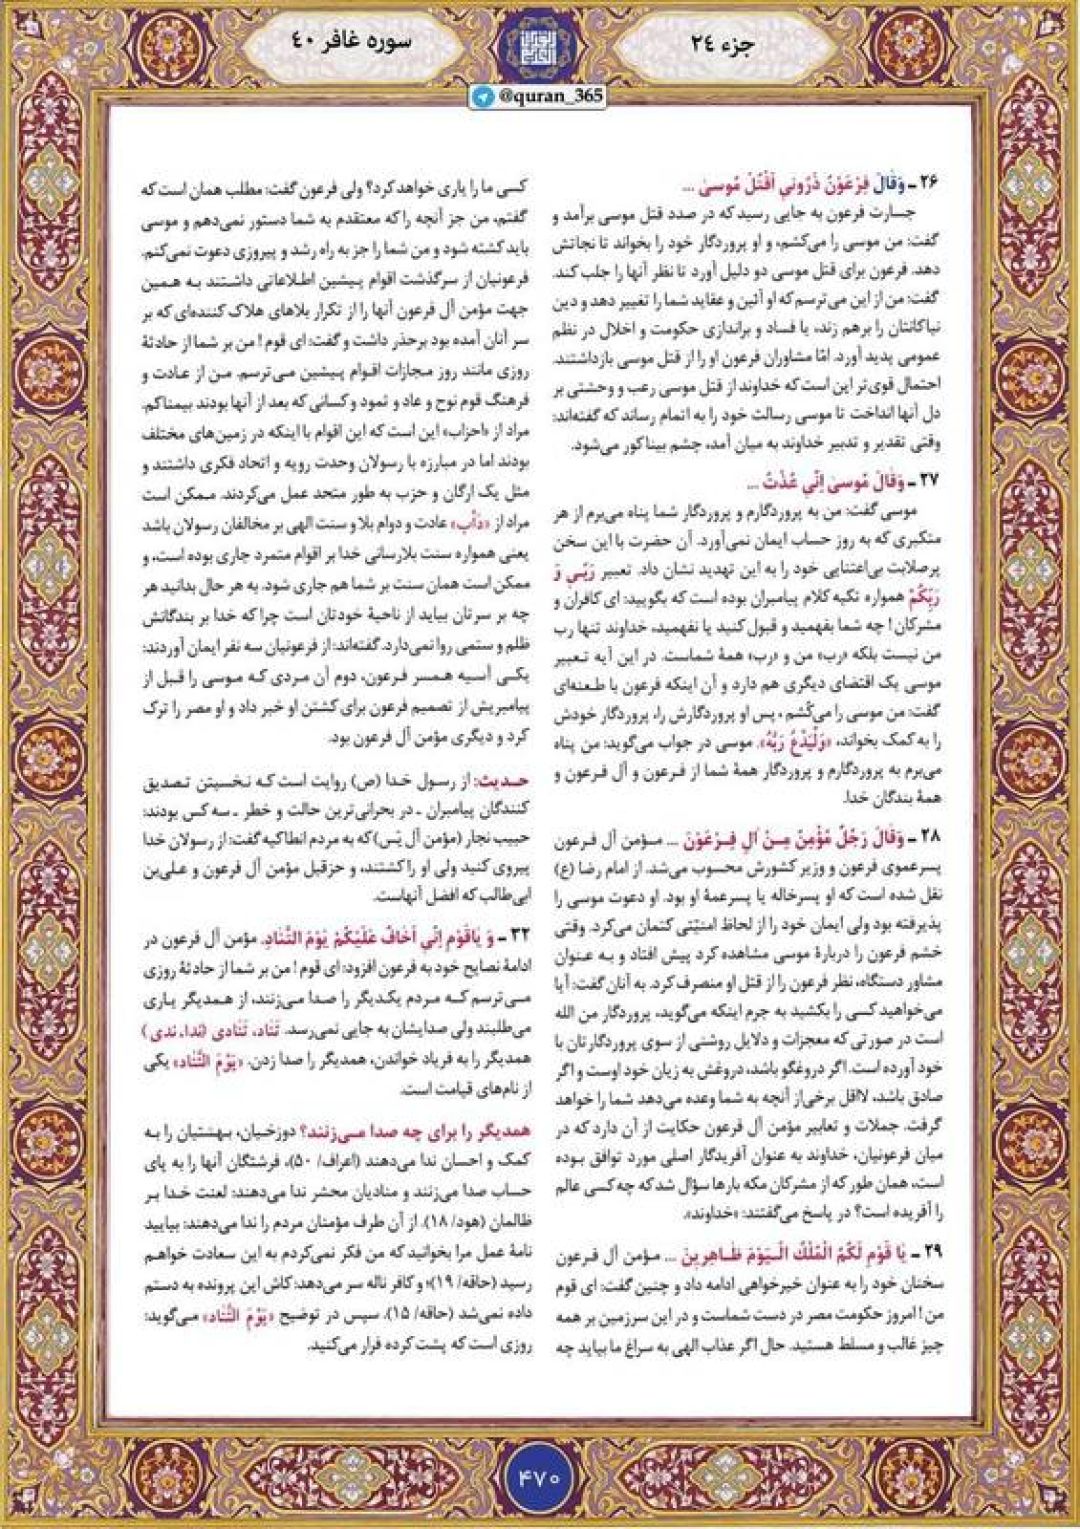 جزء ۲۴
سوره غافر ۴۰
@quran_365
۲۶ ـ وَقَالَ فِرْعَوْنُ ذَرُونِي أَقْتُلْ مُوسىٰ ...
جسارت فرعون به جایی رسید که در صدد قتل موسی برآمد و
گفت: من موسی را می‌کشم، و او پروردگار خود را بخواند تا نجاتش
دهد. فرعون برای قتل موسی دو دلیل آورد تا نظر آنها را جلب کند.
گفت: من از این می‌ترسم که او آئین و عقاید شما را تغییر دهد و دین
نیاکانتان را برهم زند، یا فساد و براندازی حکومت و اخلال در نظم
عمومی پدید آورد. امّا مشاوران فرعون او را از قتل موسی بازداشتند.
احتمال قوی‌تر این است که خداوند از قتل موسی رعب و وحشتی بر
دل آنها انداخت تا موسی رسالت خود را به اتمام رساند که گفته‌اند:
وقتی تقدیر و تدبیر خداوند به میان آمد، چشم بینا کور می‌شود.
۲۷ ـ وَقَالَ مُوسىٰ اِنّي عُذْتُ ...
موسی گفت: من به پروردگارم و پروردگار شما پناه می‌برم از هر
متکبری که به روز حساب ایمان نمی‌آورد. آن حضرت با این سخن
پرصلابت بی‌اعتنایی خود را به این تهدید نشان داد. تعبیر رَبّي وَ
رَبّكُمْ همواره تکیه کلام پیامبران بوده است که بگویید: ای کافران و
مشرکان! چه شما بفهمید و قبول کنید یا نفهمید، خداوند تنها رب
من نیست بلکه «رب» من و «رب» همهٔ شماست. در این آیه تعبیر
موسی یک اقتضای دیگری هم دارد و آن اینکه فرعون با طعنه‌ای
گفت: من موسی را می‌کُشم ، پس او پروردگارش را، پروردگار خودش
را به کمک بخواند، «وَلْيَدْعُ رَبَّهُ». موسی در جواب می‌گوید: من پناه
می‌برم به پروردگارم و پروردگار همهٔ شما از فرعون و آل فرعون و
همهٔ بندگان خدا.
۲۸ ـ وَقَالَ رَجُلٌ مُؤْمِنٌ مِنْ اٰلِ فِرْعَوْنَ ... مؤمن آل فرعون
پسرعموی فرعون و وزیر کشورش محسوب می‌شد. از امام رضا (ع)
نقل شده است که او پسرخاله یا پسرعمهٔ او بود. او دعوت موسی را
پذیرفته بود ولی ایمان خود را از لحاظ امنیّتی کتمان می‌کرد. وقتی
خشم فرعون را دربارهٔ موسی مشاهده کرد پیش افتاد و به عنوان
مشاور دستگاه، نظر فرعون را از قتل او منصرف کرد. به آنان گفت: آیا
می‌خواهید کسی را بکشید به جرم اینکه می‌گوید، پروردگار من الله
است در صورتی که معجزات و دلایل روشنی از سوی پروردگارتان با
خود آورده است. اگر دروغگو باشد، دروغش به زیان خود اوست و اگر
صادق باشد، لااقل برخی‌از آنچه به شما وعده می‌دهد شما را خواهد
گرفت. جملات و تعابیر مؤمن آل فرعون حکایت از آن دارد که در
میان فرعونیان، خداوند به عنوان آفریدگار اصلی مورد توافق بوده
است، همان طور که از مشرکان مکه بارها سؤال شد که چه کسی عالم
را آفریده است؟ در پاسخ می‌گفتند: «خداوند».
۲۹ ـ یٰا قَوْمِ لَكُمُ الْمُلْكُ الْيَوْمَ ظٰاهِرينَ ... مؤمن آل فرعون
سخنان خود را به عنوان خیرخواهی ادامه داد و چنین گفت: ای قوم
من! امروز حکومت مصر در دست شماست و در این سرزمین بر همه
چیز غالب و مسلط هستید. حال اگر عذاب الهی به سراغ ما بیاید چه
کسی ما را یاری خواهد کرد؟ ولی فرعون گفت: مطلب همان است که
گفتم، من جز آنچه را که معتقدم به شما دستور نمی‌دهم و موسی
باید کشته شود و من شما را جز به راه رشد و پیروزی دعوت نمی‌کنم.
فرعونیان از سرگذشت اقوام پیشین اطلاعاتی داشتند به همین
جهت مؤمن آل فرعون آنها را از تکرار بلاهای هلاک کننده‌ای که بر
سر آنان آمده بود برحذر داشت و گفت: ای قوم! من بر شما از حادثهٔ
روزی مانند روز مجازات اقوام پیشین می‌ترسم. من از عادت و
فرهنگ قوم نوح و عاد و ثمود و کسانی که بعد از آنها بودند بیمناکم.
مراد از «احزاب» این است که این اقوام با اینکه در زمین‌های مختلف
بودند اما در مبارزه با رسولان وحدت رویه و اتحاد فکری داشتند و
مثل یک ارگان و حزب به طور متحد عمل می‌کردند. ممکن است
مراد از «دَأْبِ» عادت و دوام بلا و سنت الهی بر مخالفان رسولان باشد
یعنی همواره سنت بلارسانی خدا بر اقوام متمرد جاری بوده است، و
ممکن است همان سنت بر شما هم جاری شود. به هر حال بدانید هر
چه بر سرتان بیاید از ناحیهٔ خودتان است چرا که خدا بر بندگانش
ظلم و ستمی روا نمی‌دارد. گفته‌اند: از فرعونیان سه نفر ایمان آوردند:
یکی آسیه همسر فرعون، دوم آن مردی که موسی را قبل از
پیامبریش از تصمیم فرعون برای کشتن او خبر داد و او مصر را ترک
کرد و دیگری مؤمن آل فرعون بود.
حدیث: از رسول خدا (ص) روایت است که نخسیتن تصدیق
کنندگان پیامبران ـ در بحرانی‌ترین حالت و خطر ـ سه کس بودند:
حبیب نجار (مؤمن آل یٓس) که به مردم انطاکیه گفت: از رسولان خدا
پیروی کنید ولی او را کشتند، و حزقیل مؤمن آل فرعون و علی‌بن
ابی‌طالب که افضل آنهاست.
۳۲ ـ وَ يَاقَوْمِ اِنّي اَخَافُ عَلَيْكُمْ يَوْمَ التَّنَادِ. مؤمن آل فرعون در
ادامهٔ نصایح خود به فرعون افزود: ای قوم! من بر شما از حادثهٔ روزی
می‌ترسم که مردم یکدیگر را صدا می‌زنند، از همدیگر یاری
می‌طلبند ولی صدایشان به جایی نمی‌رسد. تَنَاد، تَنَادی (نِدا، ندی)
همدیگر را به فریاد خواندن، همدیگر را صدا زدن. «يَوْمَ التَّنَاد» یکی
از نام‌های قیامت است.
همدیگر را برای چه صدا می‌زنند؟ دوزخیان، بهشتیان را به
کمک و احسان ندا می‌دهند (اعراف/ ۵۰)، فرشتگان آنها را به پای
حساب صدا می‌زنند و منادیان محشر ندا می‌دهند: لعنت خدا بر
ظالمان (هود/ ۱۸). از آن طرف مؤمنان مردم را ندا می‌دهند: بیایید
نامهٔ عمل مرا بخوانید که من فکر نمی‌کردم به این سعادت خواهم
رسید (حاقه/ ۱۹)؛ و کافر ناله سر می‌دهد: کاش این پرونده به دستم
داده نمی‌شد (حاقه/ ۱۵). سپس در توضیح «يَوْمَ التَّنَاد» می‌گوید:
روزی است که پشت کرده فرار می‌کنید.
۴۷۰